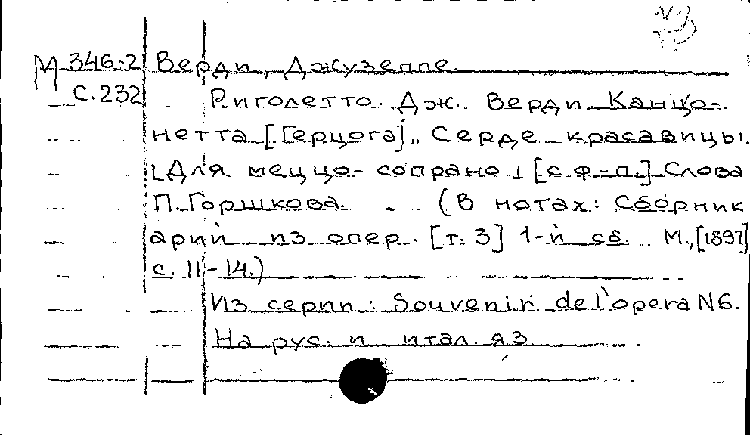 М 346:2 Верди, Джузеппе.
с. 232 Риголетто Дж. Верди Канцо-
нетта [Герцога] „Сердце красавицы.
[Для меццо-сопрано] [с ф-п.] Слова
П. Горшкова. (В нотах: Сборник
арий из опер. [т. 3] 1-й сб. М., [1897]
с. 11-14.)
Из серии: Souvenir de l'opera N6.
На рус. и итал. яз.